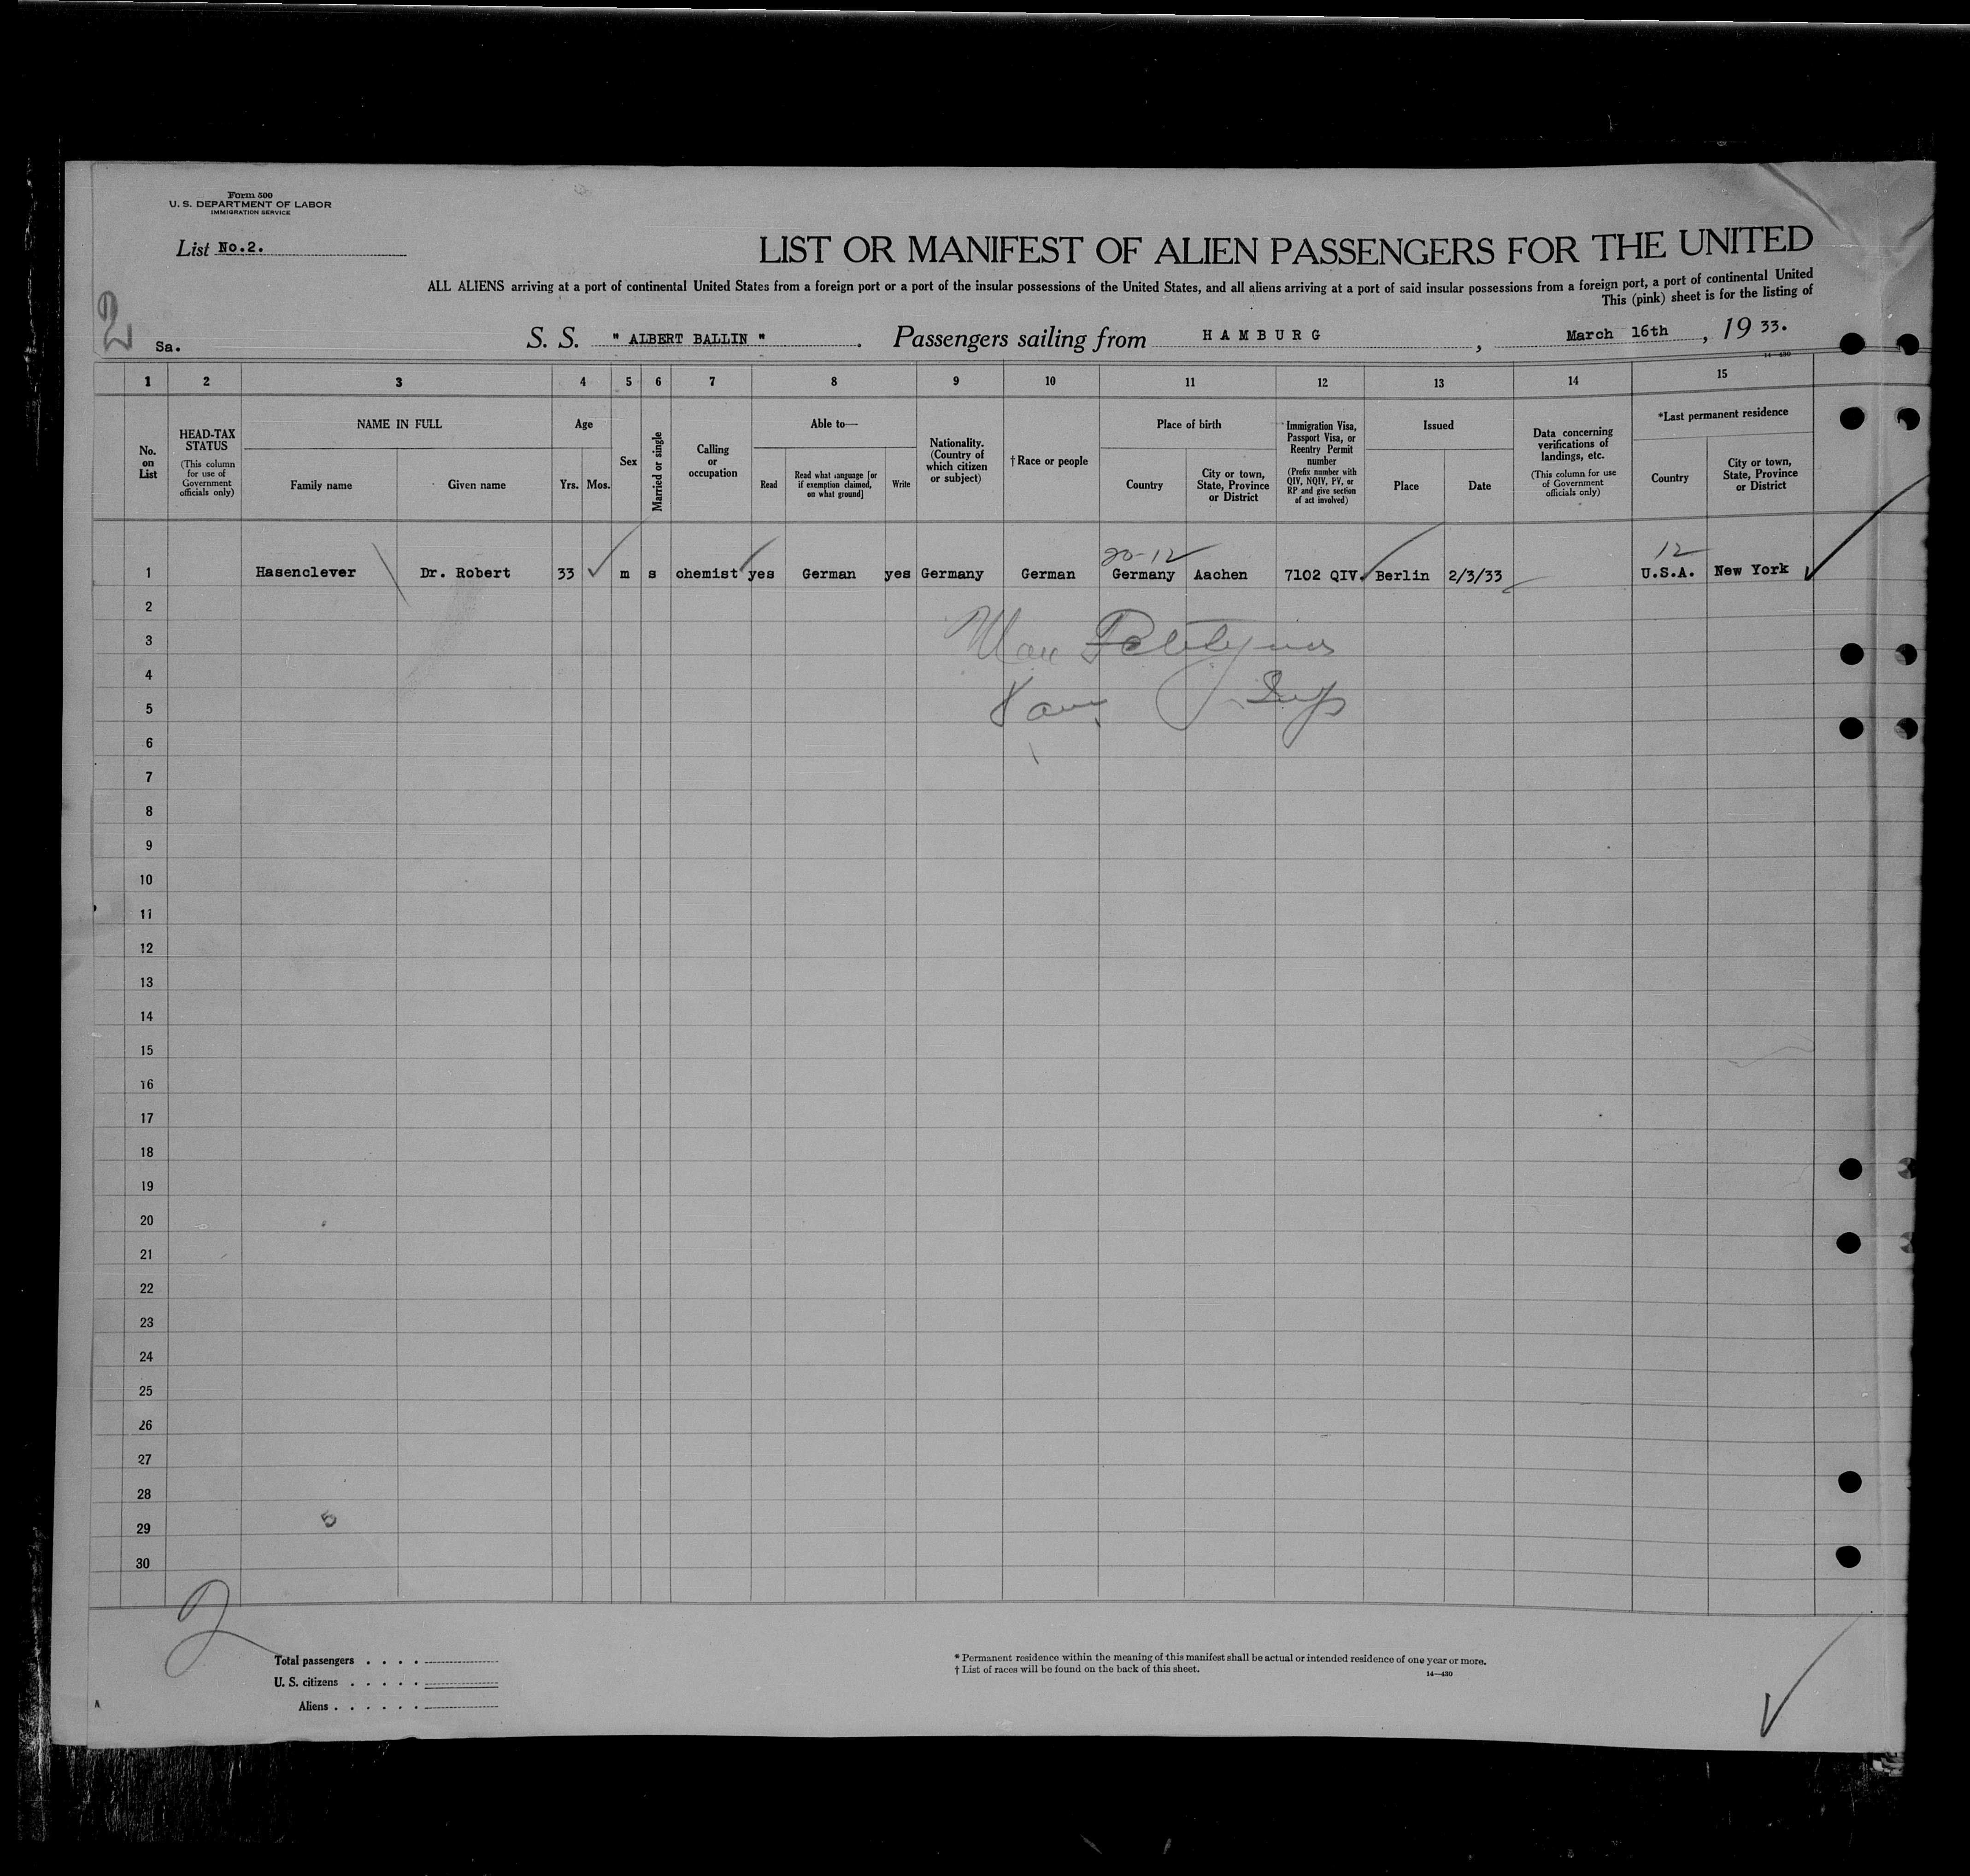 Form 500
U. S. DEPARTMENT OF LABOR
IMMIGRATION SERVICE
List No.2.
LIST OR MANIFEST OF ALIEN PASSENGERS FOR THE UNITED
ALL ALIENS arriving at a port of continental United States from a foreign port or a port of the insular possessions of the United States, and all aliens arriving at a port of said insular possessions from a foreign port, a port of continental United
This (pink) sheet is for the listing of
2
Sa.
S. S. " ALBERT BALLIN " . Passengers sailing from HAMBURG , March 16th , 19 33.
14—430
1 2 3 4 5 6 7 8 9 10 11 12 13 14 15
No. on List
HEAD-TAX STATUS (This column for use of Government officials only)
NAME IN FULL
Family name
Given name
Age
Yrs. Mos.
Sex
Married or single
Calling or occupation
Able to—
Read
Read what language [or if exemption claimed, on what ground]
Write
Nationality. (Country of which citizen or subject)
†Race or people
Place of birth
Country
City or town, State, Province or District
Immigration Visa, Passport Visa, or Reentry Permit number (Prefix number with QIV, NQIV, PV, or RP and give section of act involved)
Issued
Place
Date
Data concerning verifications of landings, etc. (This column for use of Government officials only)
*Last permanent residence
Country
City or town, State, Province or District
20-12 12
1 Hasenclever Dr. Robert 33 ✓ m s chemist yes German yes Germany German Germany Aachen 7102 QIV. Berlin 2/3/33 U.S.A. New York
2
3
4
5
6
7
8
9
10
11
12
13
14
15
16
17
18
19
20
21
22
23
24
25
26
27
28
29
5
30
2
Total passengers . . . .
U. S. citizens . . . . .
Aliens . . . . . .
* Permanent residence within the meaning of this manifest shall be actual or intended residence of one year or more.
† List of races will be found on the back of this sheet.
14—430